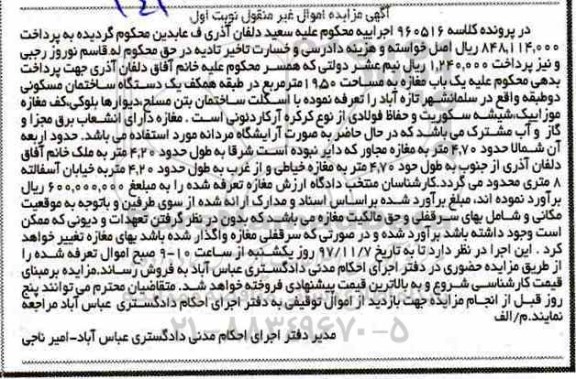 آگهی مزایده اموال غیر منقول نوبت اول
در پرونده کلاسه ۹۶۰۵۱۶ اجراییه محکوم علیه سعید دلفان آذری ف عابدین محکوم گردیده به پرداخت
۸۴۸,۱۱۴,۰۰۰ ریال اصل خواسته و هزینه دادرسی و خسارت تاخیر تادیه در حق محکوم له قاسم نوروز رجبی
و نیز پرداخت ۱,۲۴۰,۰۰۰ ریال نیم عشر دولتی که همسر محکوم علیه خانم آفاق دلفان آذری جهت پرداخت
بدهی محکوم علیه یک باب مغازه به مساحت ۱۹/۵۰مترمربع در طبقه همکف یک دستگاه ساختمان مسکونی
دوطبقه واقع در سلمانشهر تازه آباد را تعرفه نموده با اسکلت ساختمان بتن مسلح،دیوارها بلوکی،کف مغازه
موزاییک،شیشه سکوریت و حفاظ فولادی از نوع کرکره آرکاردئونی است . مغازه دارای انشعاب برق مجزا و
گاز و آب مشترک می باشد که در حال حاضر به صورت آرایشگاه مردانه مورد استفاده می باشد. حدود اربعه
آن شمالا حدود ۴,۷۰ متر به مغازه مجاور که دایر نبوده است شرقا به طول حدود ۴,۲۰ متر به ملک خانم آفاق
دلفان آذری از جنوب به طول حود ۴,۷۰ متر به مغازه خیاطی و از غرب به طول حدود ۴,۲۰ متربه خیابان آسفالته
۸ متری محدود می گردد.کارشناسان منتخب دادگاه ارزش مغازه تعرفه شده را به مبلغ ۶۰۰,۰۰۰,۰۰۰ ریال
برآورد نموده اند، مبلغ برآورد شده براساس اسناد و مدارک ارائه شده از سوی طرفین و باتوجه به موقعیت
مکانی و شامل بهای سرقفلی و حق مالکیت مغازه می باشد که بدون در نظر گرفتن تعهدات و دیونی که ممکن
است وجود داشته باشد برآورد شده و در صورتی که سرقفلی مغازه واگذار شده باشد بهای مغازه تغییر خواهد
کرد . این اجرا در نظر دارد تا به تاریخ ۹۷/۱۱/۷ روز یکشنبه از ساعت ۱۰-۹ صبح اموال تعرفه شده را
از طریق مزایده حضوری در دفتر اجرای احکام مدنی دادگستری عباس آباد به فروش رساند.مزایده برمبنای
قیمت کارشناسی شروع و به بالاترین قیمت پیشنهادی فروخته خواهد شد. متقاضیان محترم می توانند پنج
روز قبل از انجام مزایده جهت بازدید از اموال توقیفی به دفتر اجرای احکام دادگستری عباس آباد مراجعه
نمایند.م/الف
مدیر دفتر اجرای احکام مدنی دادگستری عباس آباد-امیر ناجی
۰۲۱-۸۸۳۴۹۶۷۰-۵